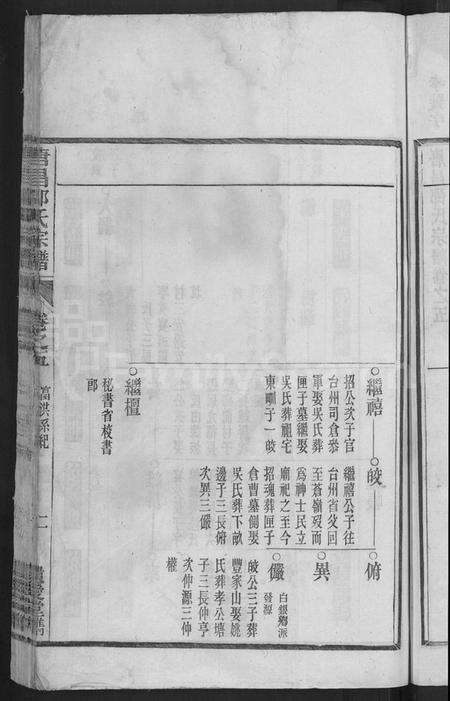 繼禧
招公次子官
台州司倉參
軍娶吳氏葬
匣子墓繼娶
吳氏葬祖宅
東畔子一皎
皎
繼禧公子往
台州省父回
至蒼嶺歿而
為神士民立
廟祀之至今
招魂葬匣子
倉曹墓側娶
吳氏葬下畝
邊子三長俯
次異三儼
俯
異
儼
白銀鄉派
發源
皎公三子葬
豐家山娶姚
氏葬孝公塘
子三長仲亨
次仲源三仲
權
繼檀
秘書省校書
郎
昌氏宗譜
卷之五
二